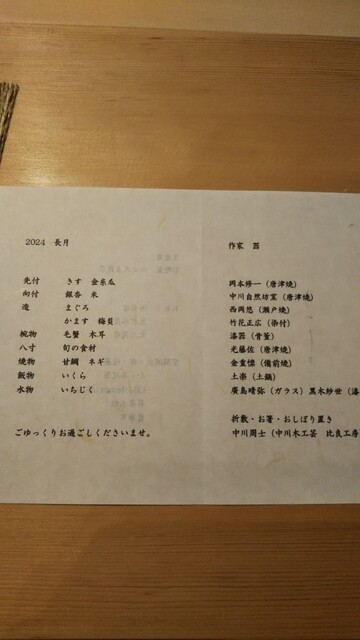 2024 長月
先付 きす 金糸瓜
向付 銀杏 米
造 まぐろ
かます 梅貝
椀物 毛蟹 木耳
八寸 旬の食材
焼物 甘鯛 ネギ
飯物 いくら
水物 いちじく
ごゆっくりお過ごしくださいませ。
作家 器
岡本修一(唐津焼)
中川自然坊窯(唐津焼)
西岡悠(瀬戸焼)
竹花正広(染付)
漆器(音窯)
光藤佐(唐津焼)
金重愫(備前焼)
土楽(土鍋)
廣島晴弥(ガラス)黒木紗世(漆
折敷・お箸・おしぼり置き
中川周士(中川木工芸 比良工房